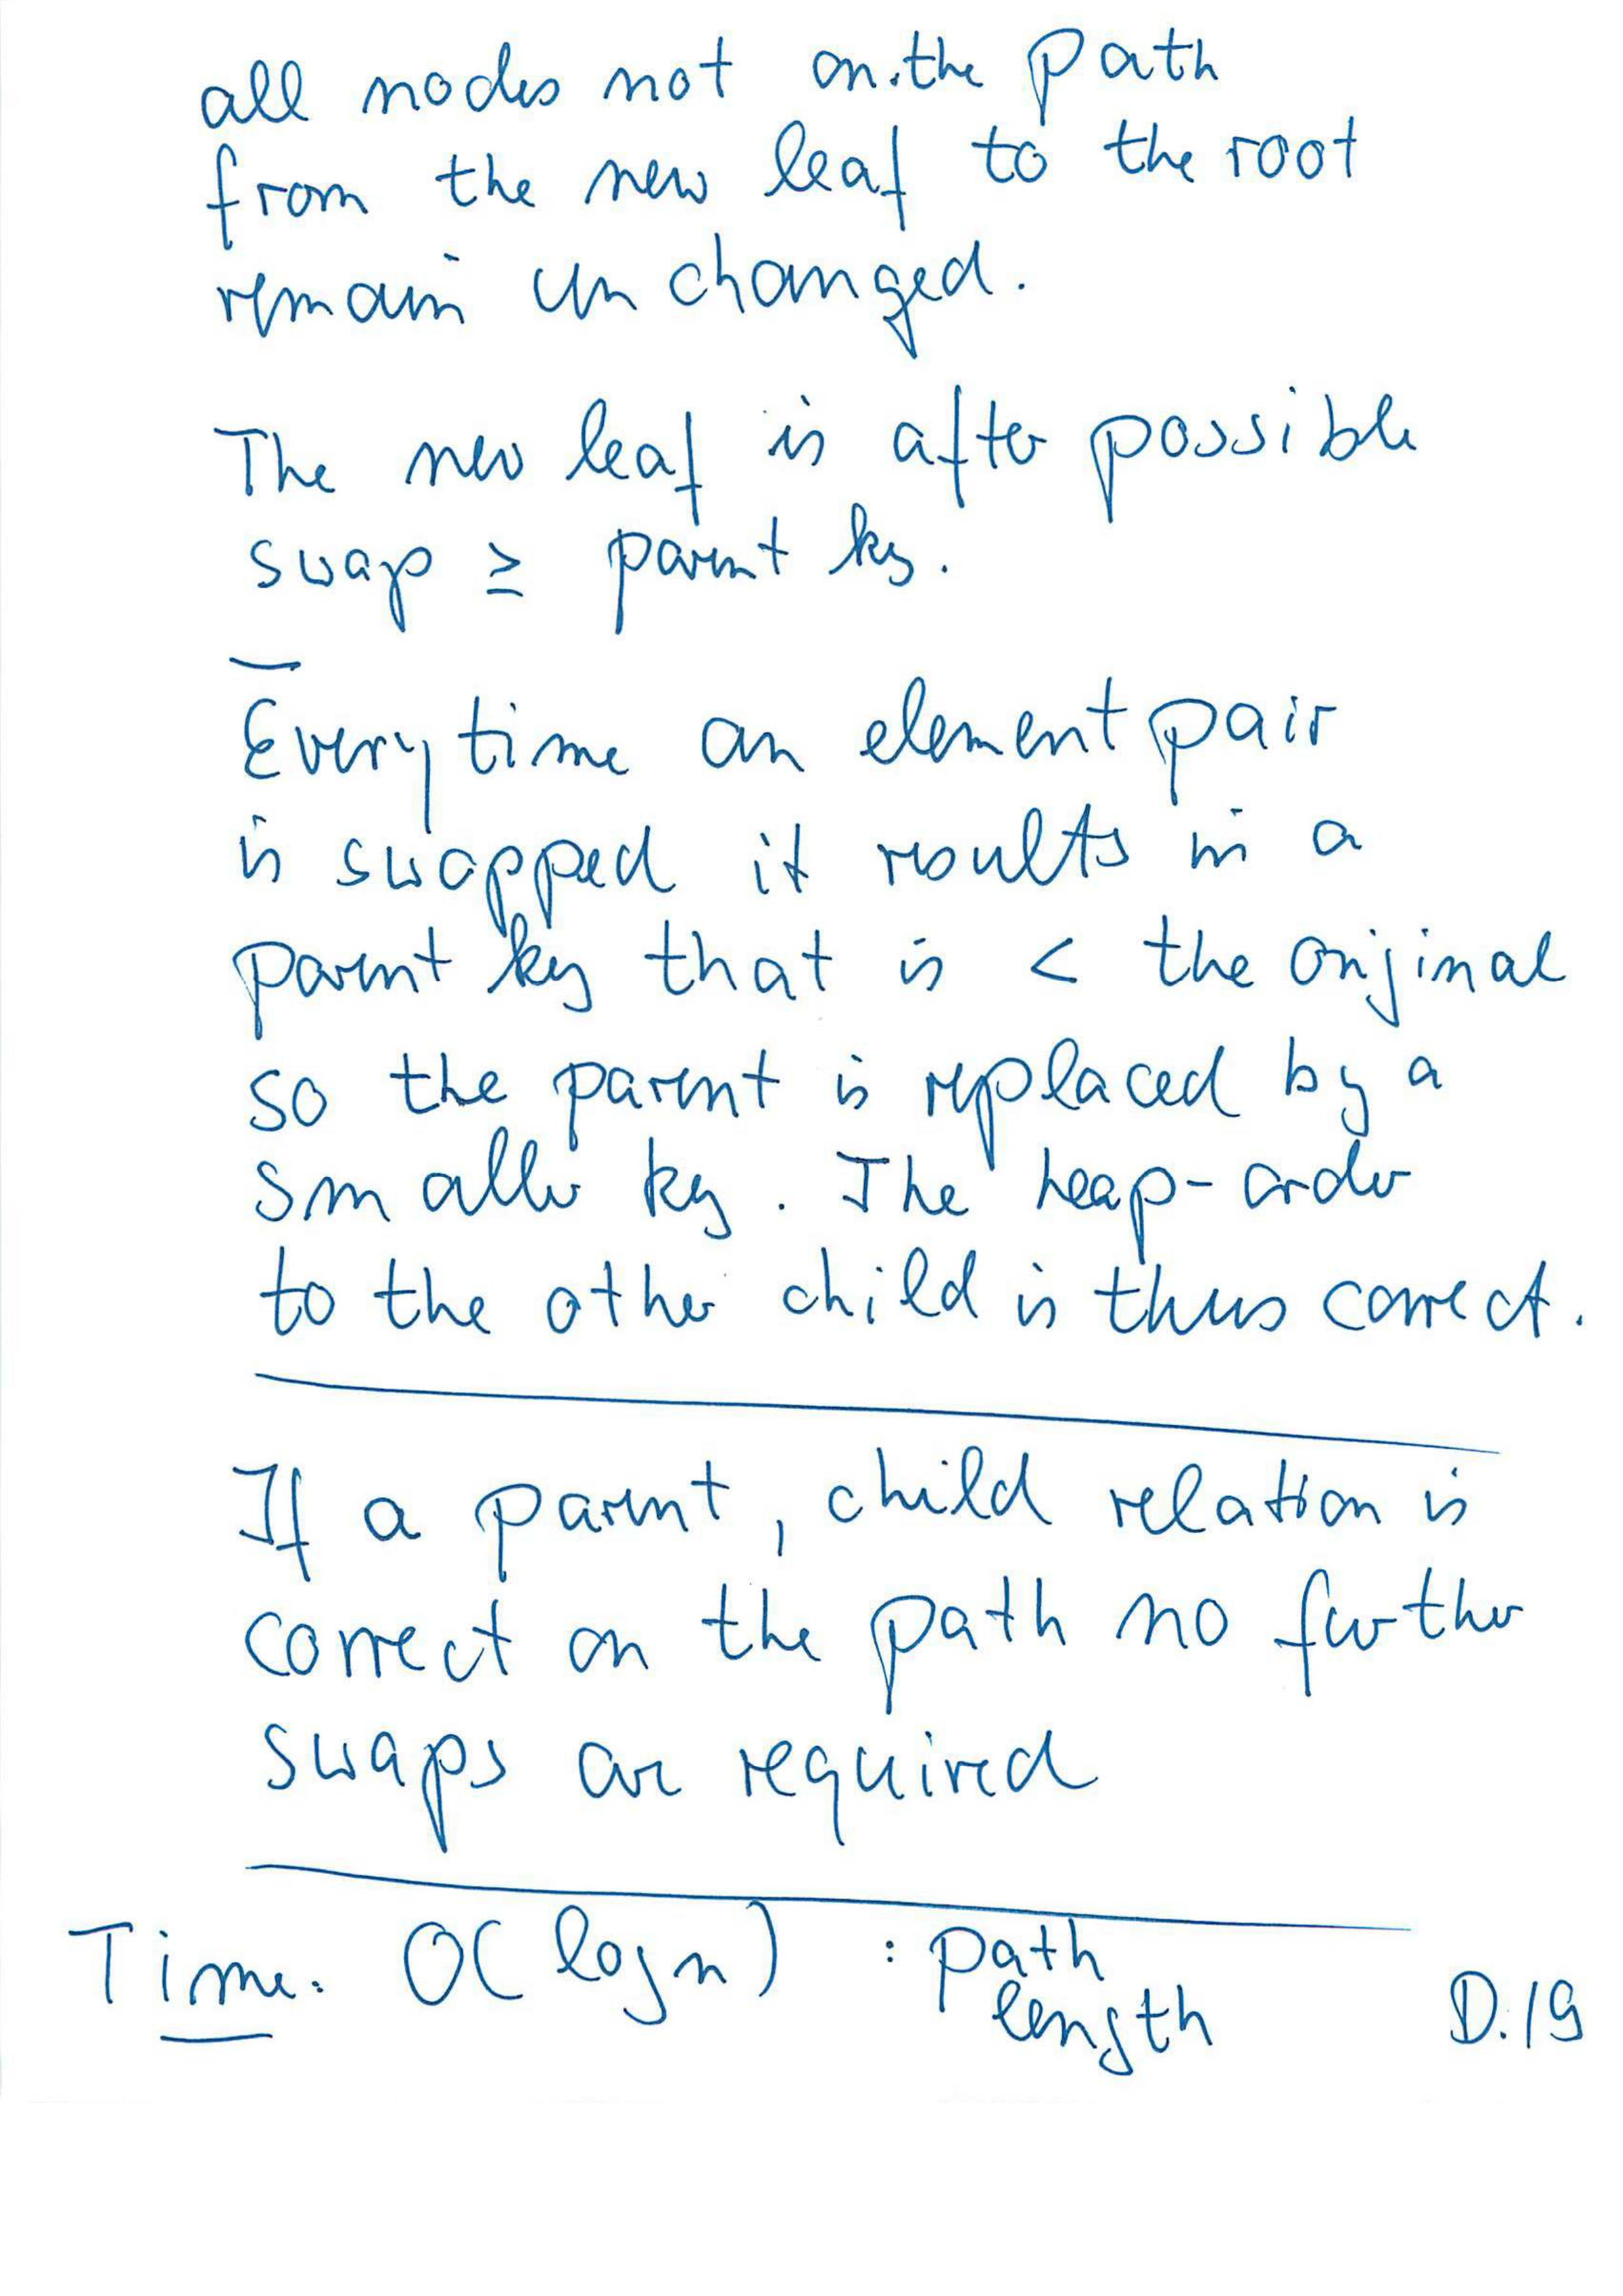 all nodes not on the path
from the new leaf to the root
remain unchanged.
The new leaf is after possible
swap ≥ parent key.
Every time an element pair
is swapped it results in a
parent key that is < the original
so the parent is replaced by a
smaller key. The heap-order
to the other child is thus correct.
If a parent, child relation is
correct on the path no further
swaps are required
Time: O(log n) : path
length
D.19